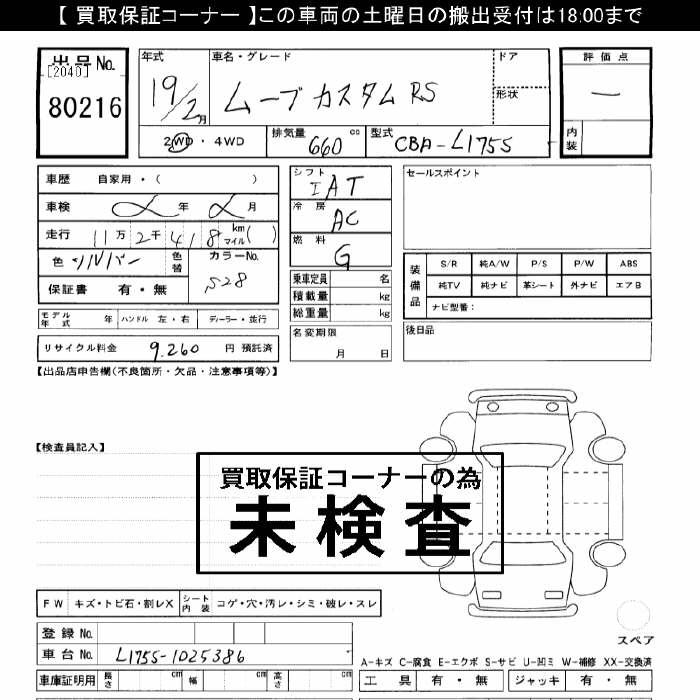 【 買取保証コーナー 】この車両の土曜日の搬出受付は18:00まで
出品No.
[2040]
80216
年式
19/2月
車名・グレード
ムーブカスタム RS
ドア
形状
評価点
一
内装
2WD・4WD
排気量 660 cc
型式 CBA-L175S
車歴 自家用・( )
車検 年 月
走行 11万2千418 km マイル( )
色 シルバー
色替
カラーNo.
S28
保証書 有・無
モデル年式 年 ハンドル 左・右 ディーラー・並行
リサイクル料金 9,260 円 預託済
シフト
IAT
冷房
AC
燃料
G
乗車定員 名
積載量 kg
総重量 kg
名変期限
月 日
セールスポイント
装備品
S/R 純A/W P/S P/W ABS
純TV 純ナビ 革シート 外ナビ エアB
ナビ型番:
後日品
【出品店申告欄(不良箇所・欠品・注意事項等)】
【検査員記入】
買取保証コーナーの為
未検査
FW キズ・トビ石・割レX シート内装 コゲ・穴・汚レ・シミ・破レ・スレ
登録No.
車台No. L175S-1025386
車庫証明用 長さ cm 幅 cm 高さ cm
スペア
A-キズ C-腐食 E-エクボ S-サビ U-凹ミ W-補修 XX-交換済
工具 有・無 ジャッキ 有・無